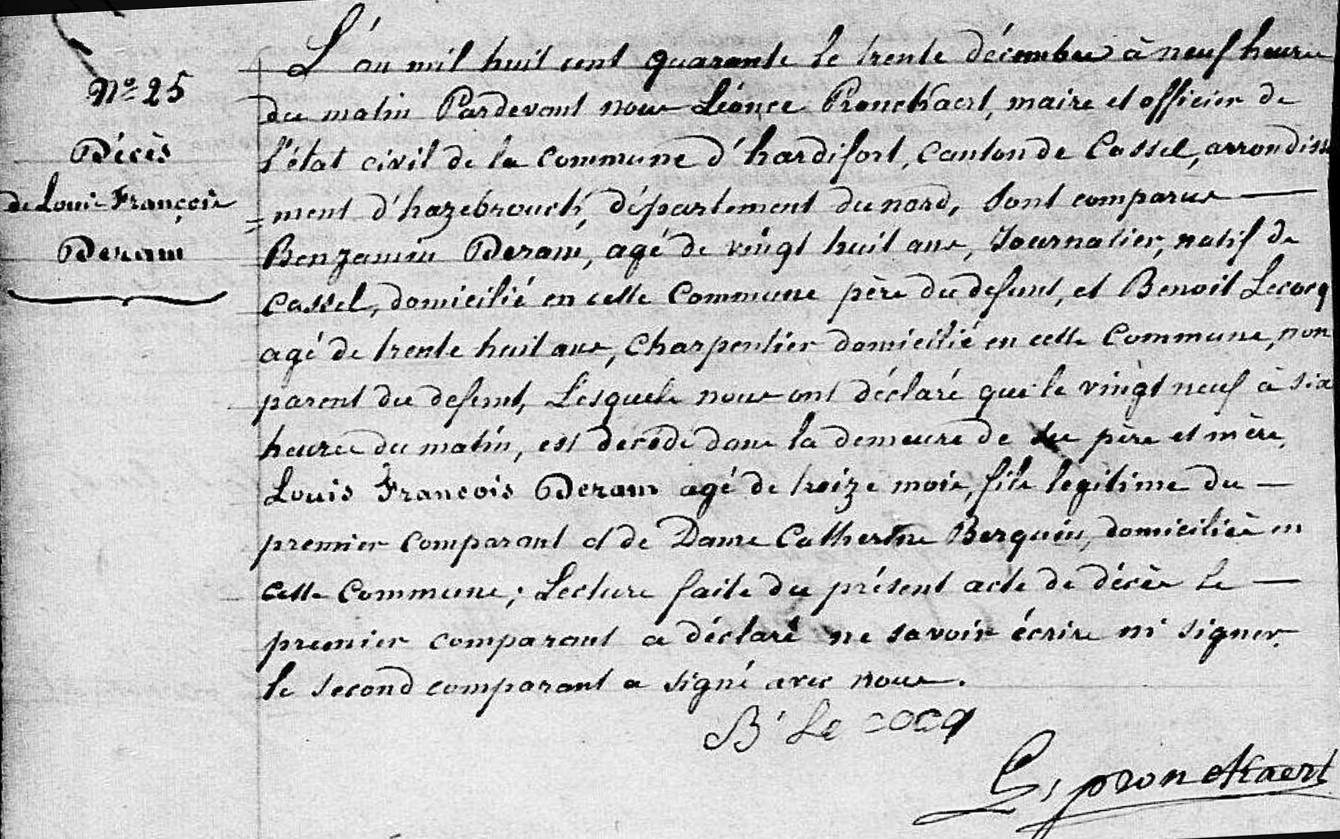 Nº 25
Décès
de Louis François
Deram
L'an mil huit cent quarante le trente décembre à neuf heures
du matin Pardevant nous Léonce Pronckaert, maire et officier de
l'état civil de la commune d'hardifort, canton de Cassel, arrondisse
=ment d'hazebrouck, département du nord, sont comparus —
Benjamin Deram, agé de vingt huit ans, Journalier, natif de
Cassel, domicilié en cette Commune père du defunt, et Benoit Lecocq
agé de trente huit ans, Charpentier domicilié en cette Commune, non
parent du defunt, Lesquels nous ont déclaré que le vingt neuf à six
heures du matin, est decedé dans la demeure de ses père et mère,
Louis François Deram agé de treize mois, fils legitime du —
premier comparant et de Dame Catherine Berquin, domiciliés en
cette Commune; Lecture faite du présent acte de décès le —
premier comparant a déclaré ne savoir écrire ni signer,
le second comparant a signé avec nous.
B' Le cocq
L, pronckaert